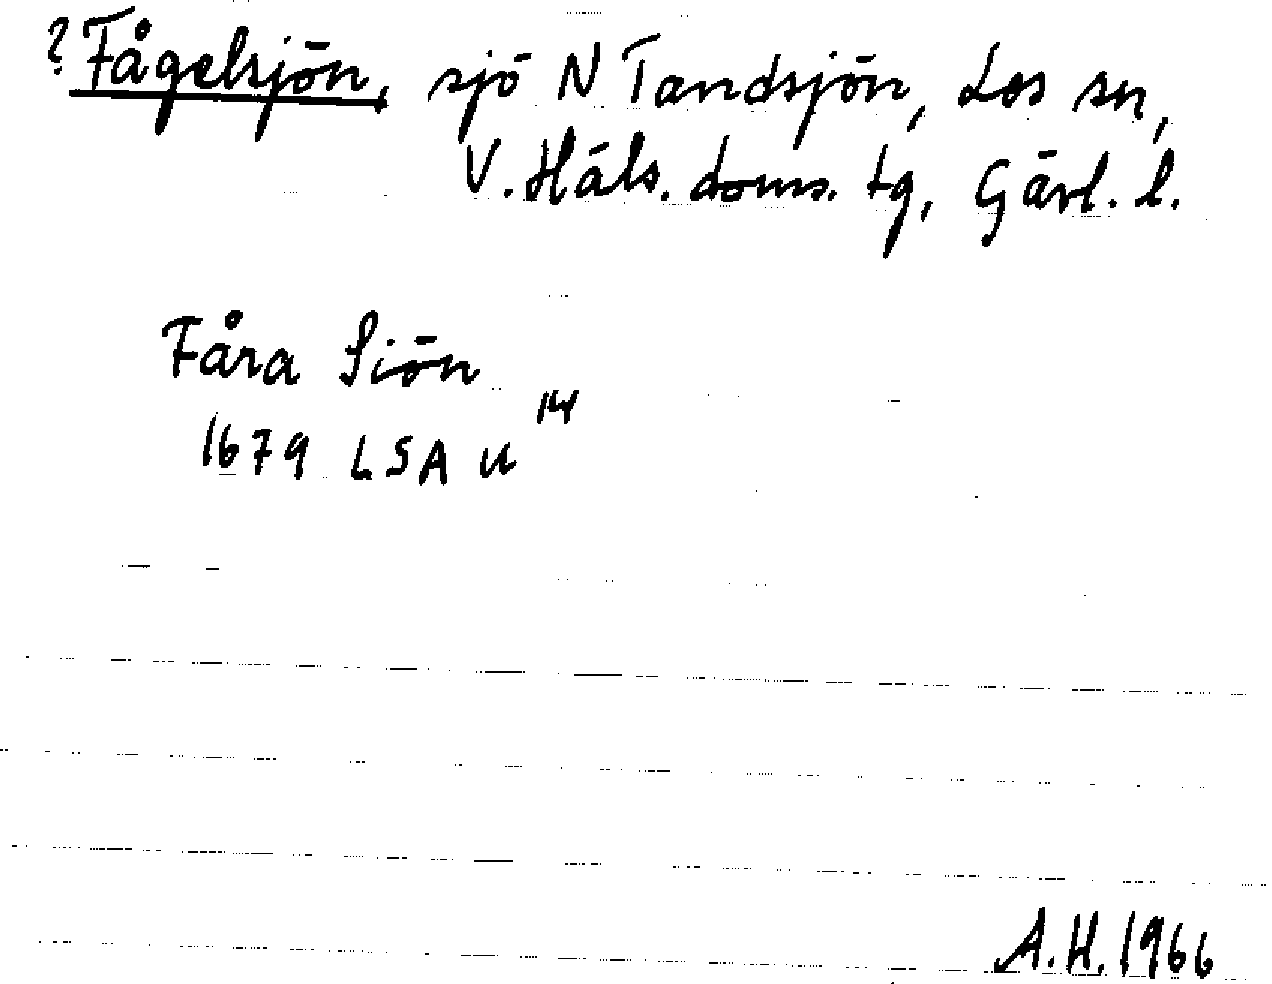 ?Fågelsjön, sjö N Tandsjön, Los sn,
V. Häls. doms. tg, Gävl. l.
Fåra Siön
1679 LSA U 14
A.H. 1966